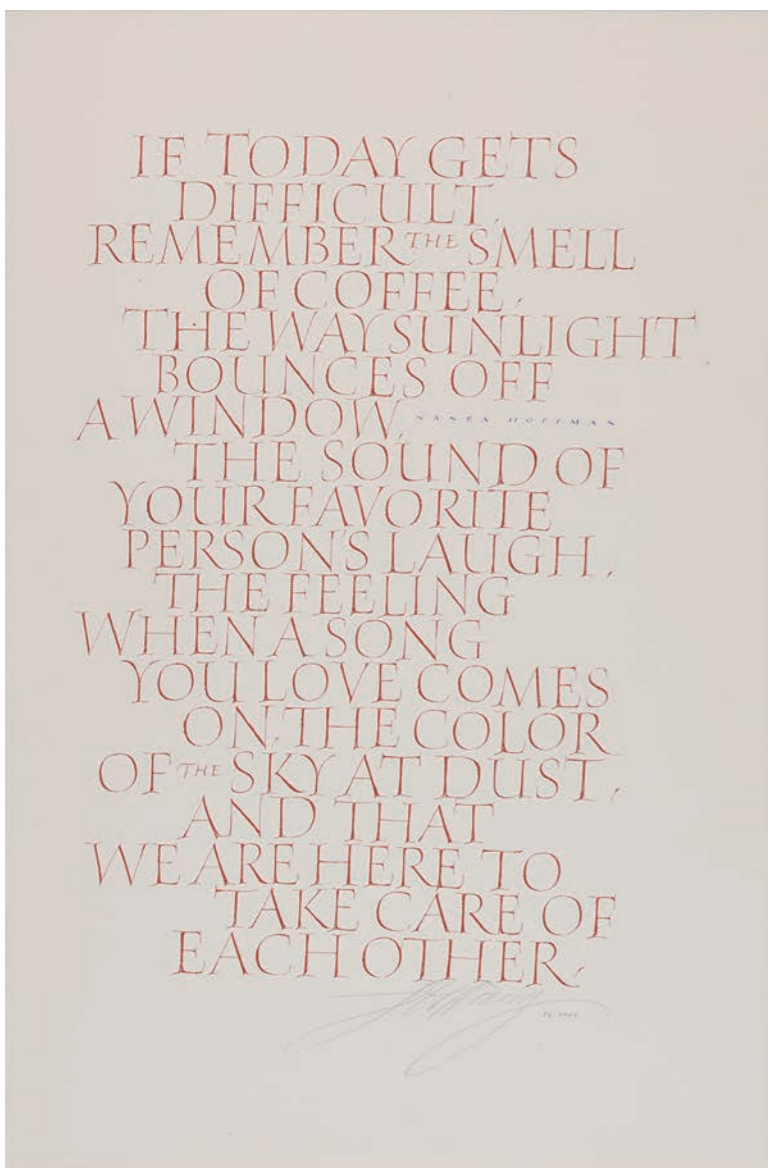 IF TODAY GETS
DIFFICULT,
REMEMBER THE SMELL
OF COFFEE,
THE WAY SUNLIGHT
BOUNCES OFF
A WINDOW, NANEA HOFFMAN
THE SOUND OF
YOUR FAVORITE
PERSON'S LAUGH,
THE FEELING
WHEN A SONG
YOU LOVE COMES
ON, THE COLOR
OF THE SKY AT DUST,
AND THAT
WE ARE HERE TO
TAKE CARE OF
EACH OTHER,